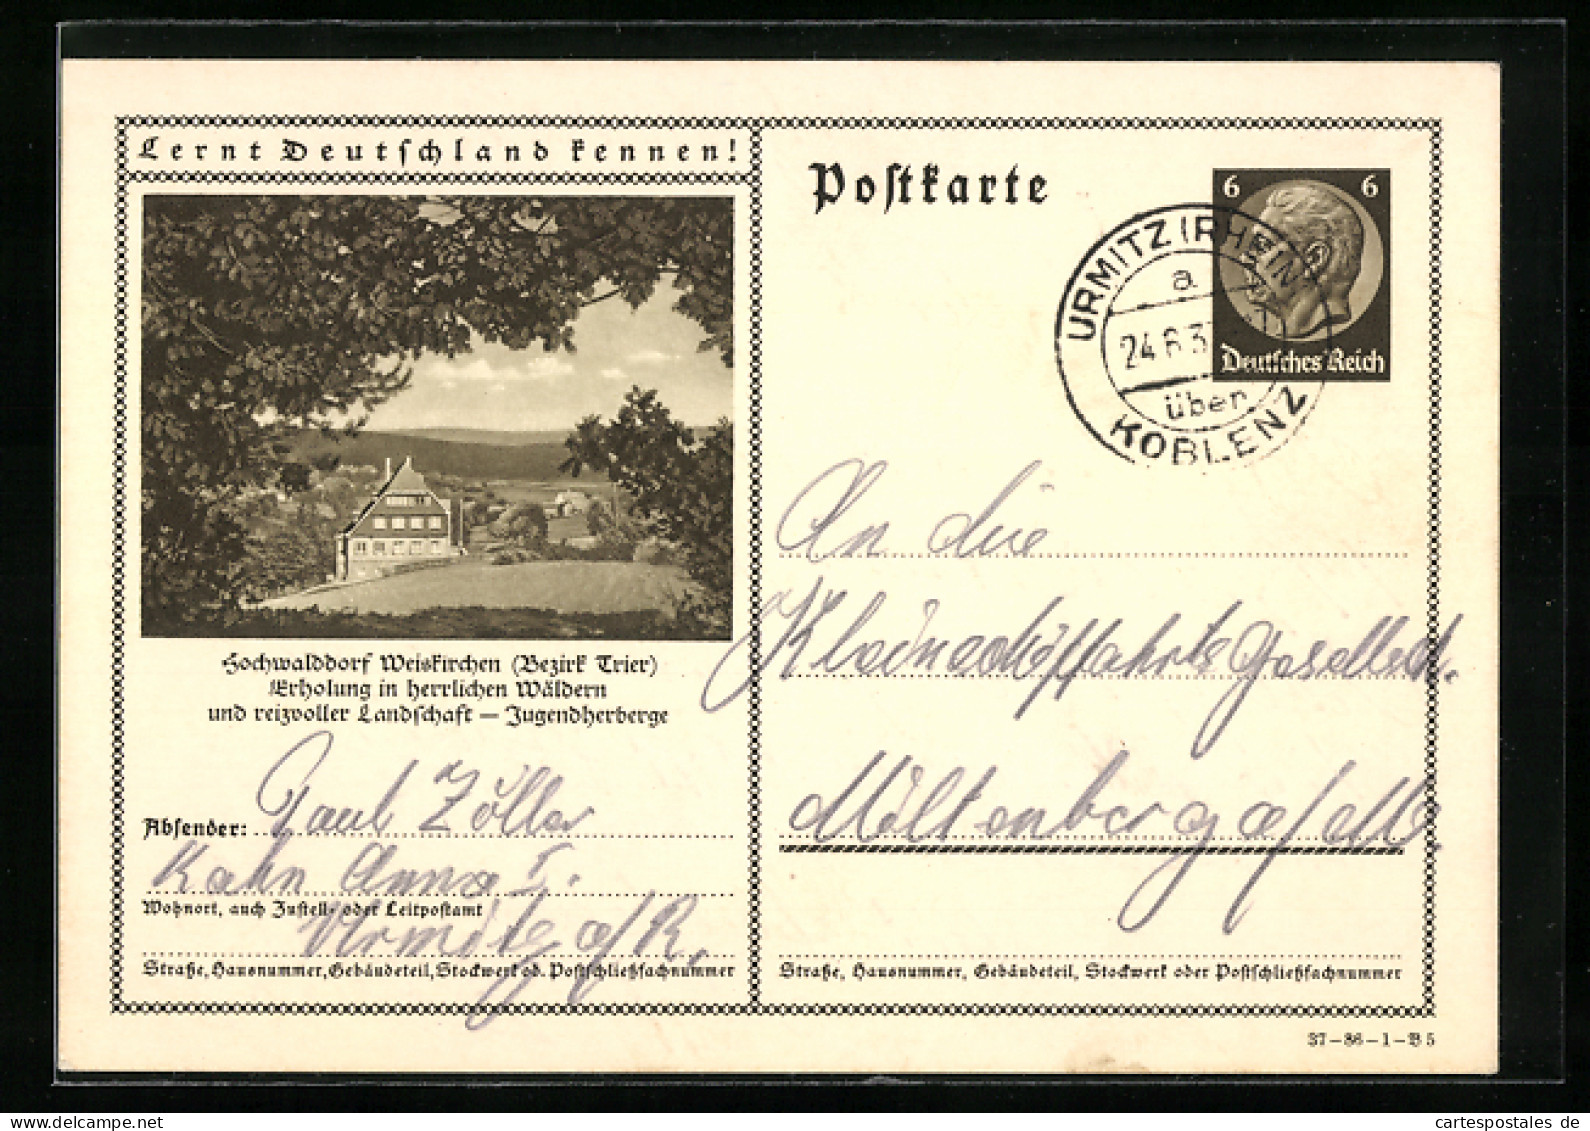 Lernt Deutschland kennen!
Hochwalddorf Weiskirchen (Bezirk Trier)
Erholung in herrlichen Wäldern
und reizvoller Landschaft — Jugendherberge
Absender: Paul Zöller
Kahn Anna I.
Wohnort, auch Zustell- oder Leitpostamt
Urmitz a/R.
Straße, Hausnummer, Gebäudeteil, Stockwerk od. Postschließfachnummer
Postkarte
6 6
Deutsches Reich
URMITZ (RHEIN)
a
24.8.3
über
KOBLENZ
An die
Kleinschiffahrts Gesellsch.
Miltenberg a/M.
Straße, Hausnummer, Gebäudeteil, Stockwerk oder Postschließfachnummer
37-86-1-B5
cartespostales de